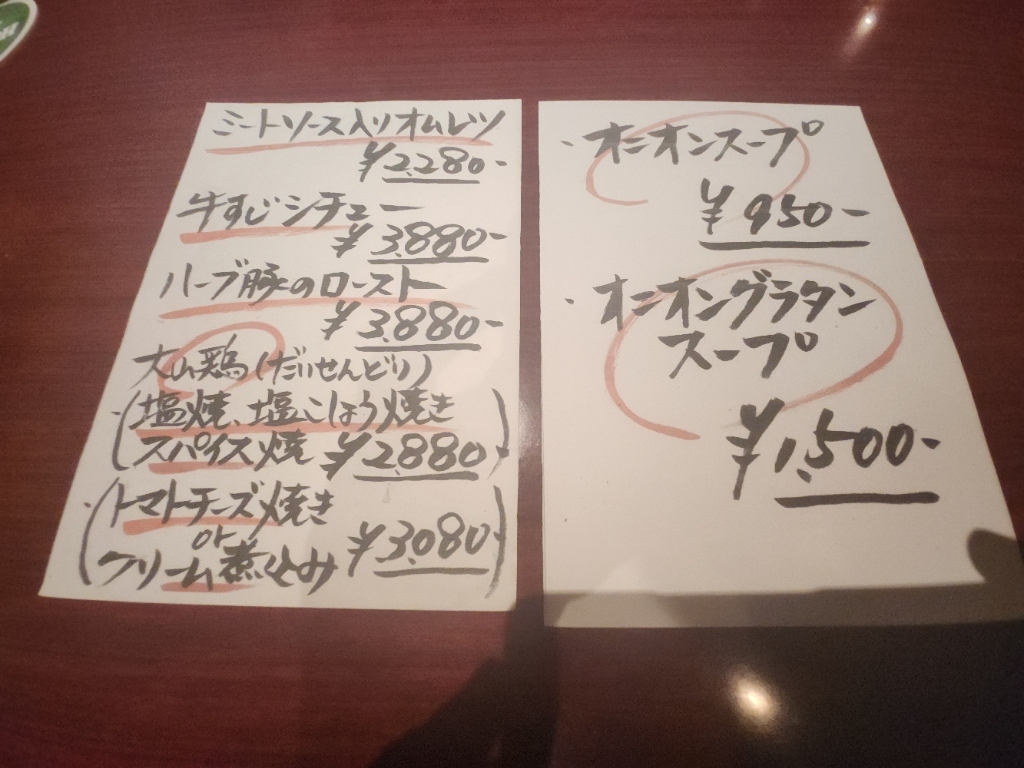 ミートソース入りオムレツ
¥2,280-
牛すじシチュー
¥3,880-
ハーブ豚のロースト
¥3,880-
大山鶏(だいせんどり)
・(塩焼、塩こしょう焼き
スパイス焼 ¥2,880-)
・(トマトチーズ焼き
or
クリーム煮込み ¥3,080-)
・オニオンスープ
¥950-
・オニオングラタン
スープ
¥1,500-